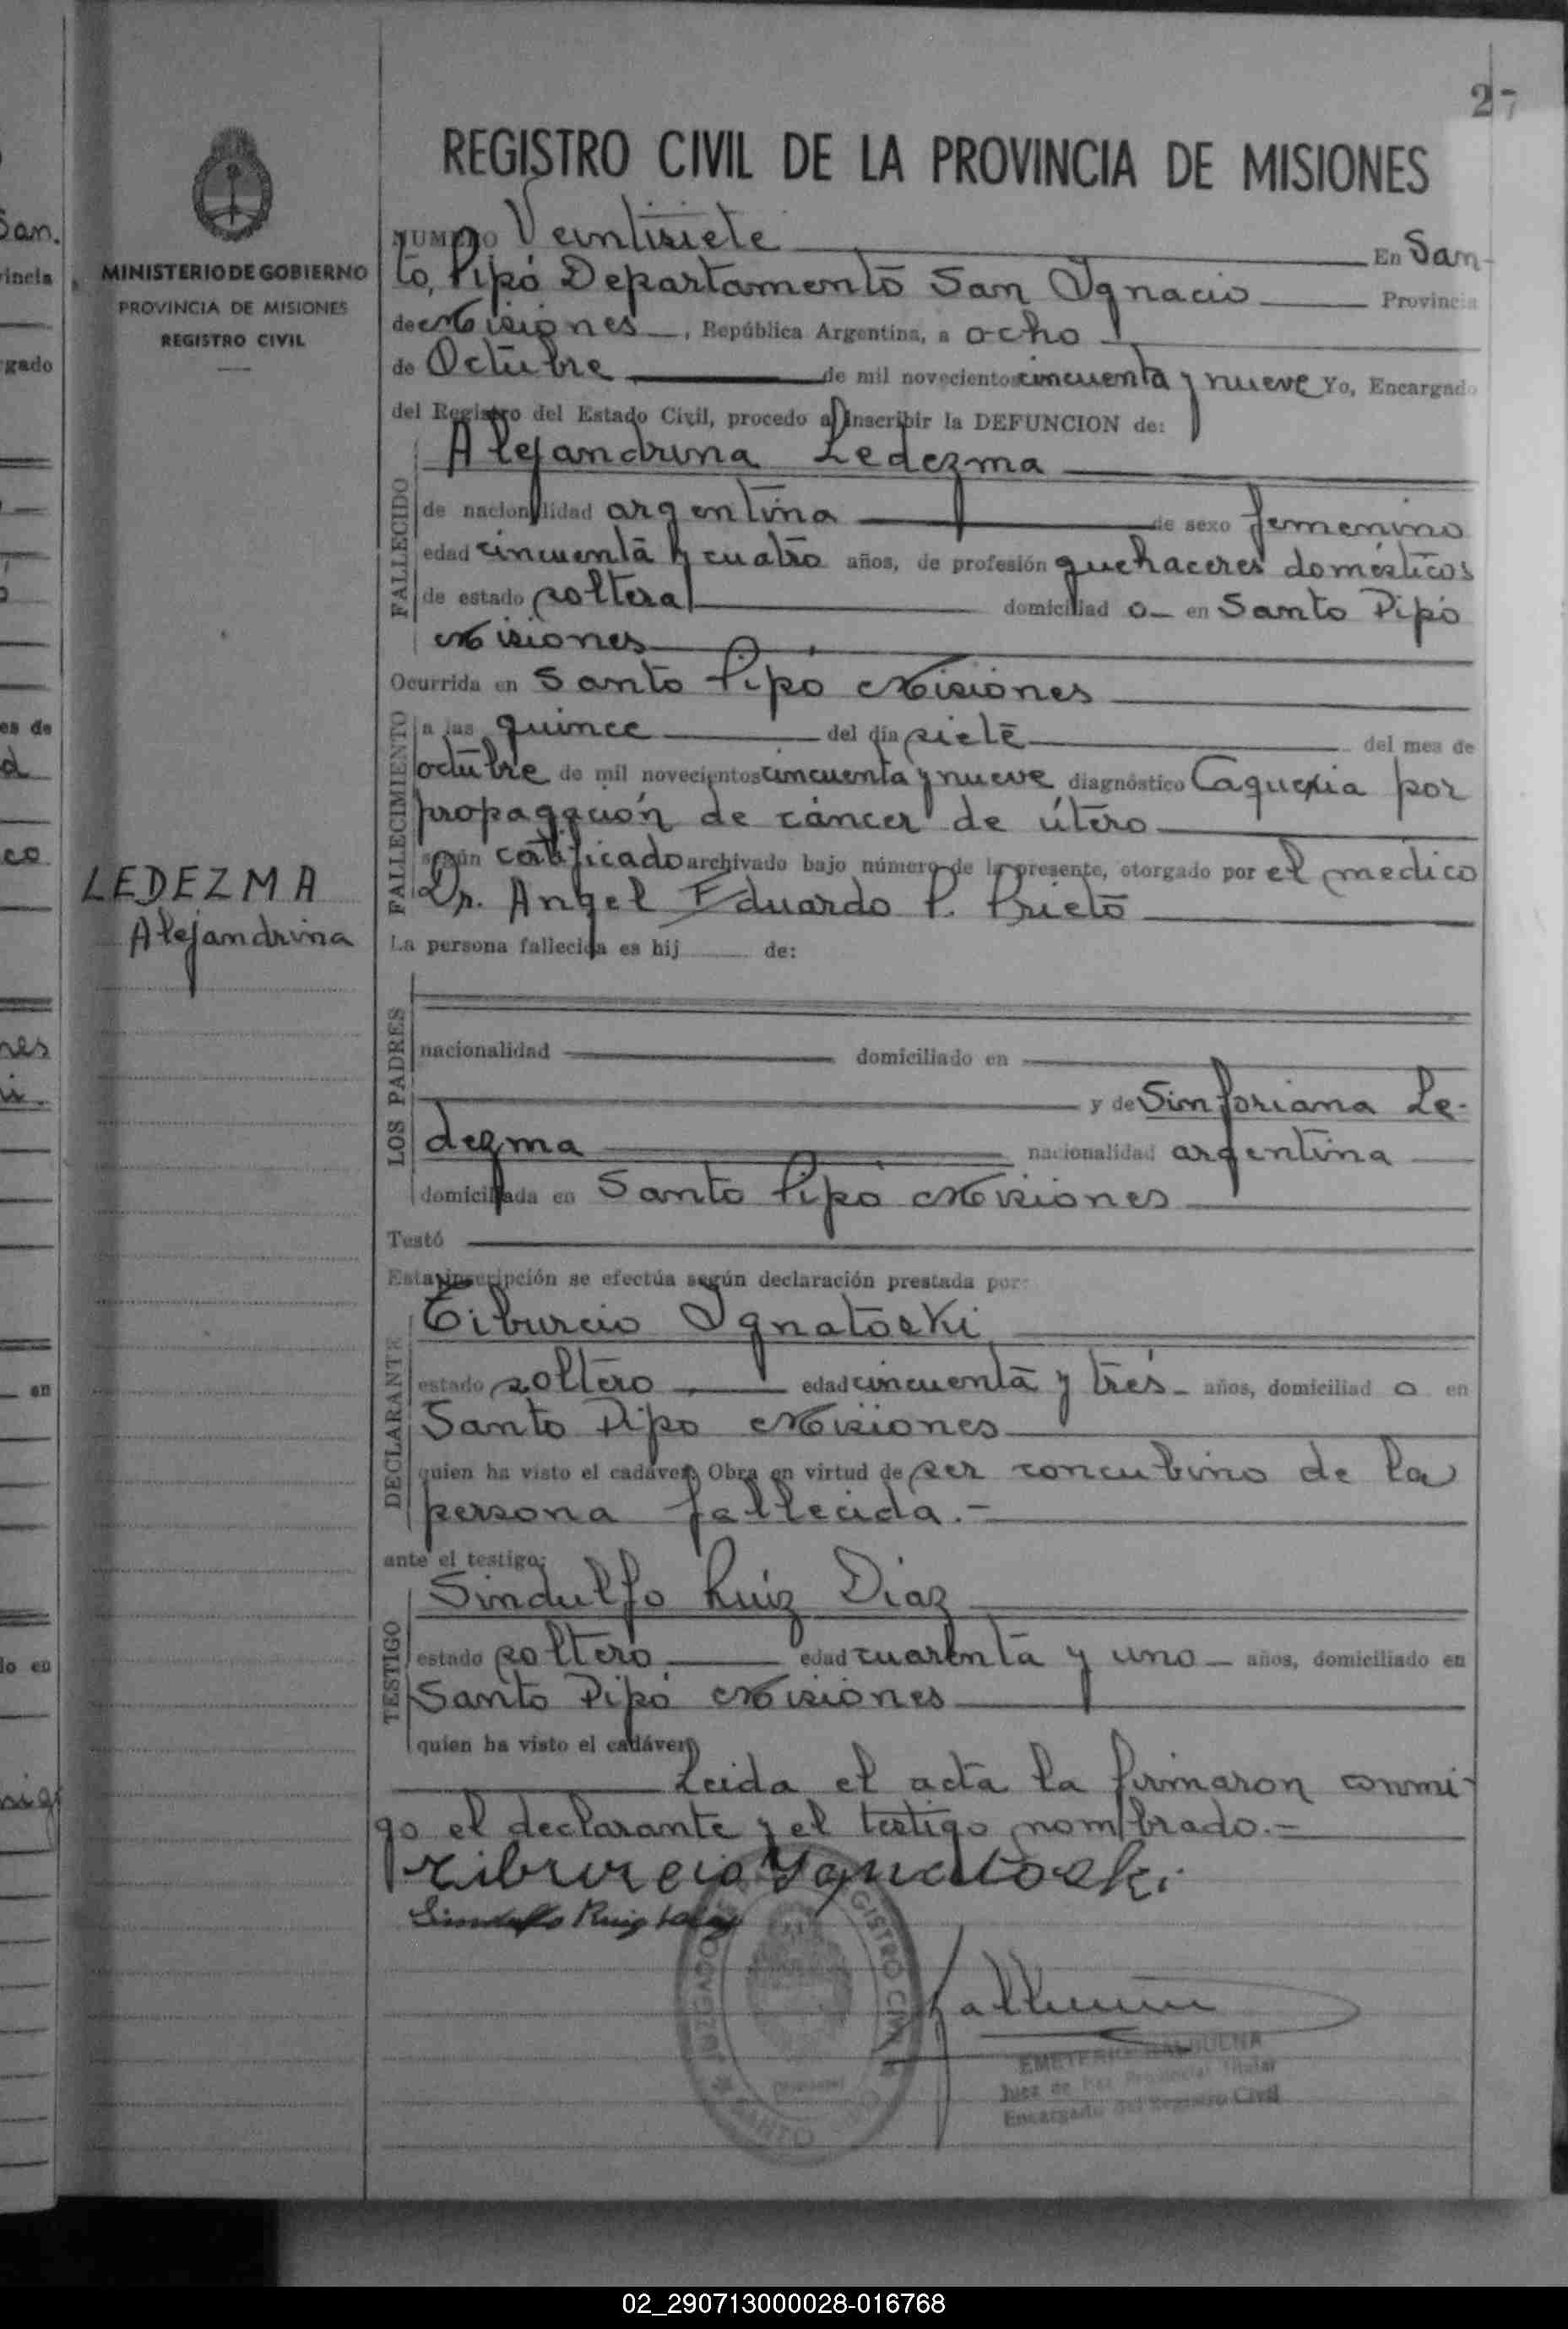 27
REGISTRO CIVIL DE LA PROVINCIA DE MISIONES
MINISTERIO DE GOBIERNO
PROVINCIA DE MISIONES
REGISTRO CIVIL
NUMERO Veintisiete En San-
to, Pipó Departamento San Ignacio Provincia
de Misiones, República Argentina, a ocho
de Octubre de mil novecientos cincuenta y nueve Yo, Encargado
del Registro del Estado Civil, procedo a inscribir la DEFUNCION de:
FALLECIDO
Alejandrina Ledezma
de nacionalidad argentina de sexo femenino
edad cincuenta y cuatro años, de profesión quehaceres domésticos
de estado soltera domiciliad o en Santo Pipó
Misiones
Ocurrida en Santo Pipó Misiones
FALLECIMIENTO
a las quince del día siete del mes de
octubre de mil novecientos cincuenta y nueve diagnóstico Caquexia por
propagación de cáncer de útero
según certificado archivado bajo número de la presente, otorgado por el medico
Dr. Angel Eduardo P. Prieto
LEDEZMA
Alejandrina
La persona fallecida es hij de:
LOS PADRES
nacionalidad domiciliado en
y de Sinforiana Le-
dezma nacionalidad argentina
domiciliada en Santo Pipó Misiones
Testó
Esta inscripción se efectúa según declaración prestada por:
DECLARANTE
Tiburcio Ignatoski
estado soltero edad cincuenta y trés años, domiciliad o en
Santo Pipo Misiones
quien ha visto el cadáver. Obra en virtud de ser concubino de la
persona fallecida.-
ante el testigo:
TESTIGO
Sindulfo Ruiz Diaz
estado soltero edad cuarenta y uno años, domiciliado en
Santo Pipó Misiones
quien ha visto el cadáver
Leida el acta la firmaron conmi-
go el declarante y el testigo nombrado.-
Tiburcio Ygnatoski
Sindulfo Ruiz Diaz
REGISTRO CIVIL
JUZGADO
SANTO
EMETERIO BALBUENA
Juez de Paz Provincial Titular
Encargado del Registro Civil
02_290713000028-016768